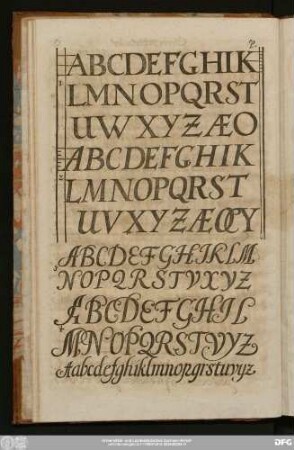 ABCDEFGHIK
LMNOPQRST
UWXYZÆO
ABCDEFGHIK
LMNOPQRST
UVXYZÆŒY
ABCDEFGHIKLM
NOPQRSTVXYZ
ABCDEFGHIL
MNOPQRSTVYZ
Aabcdefghiklmnopqrstuvyz
DFG